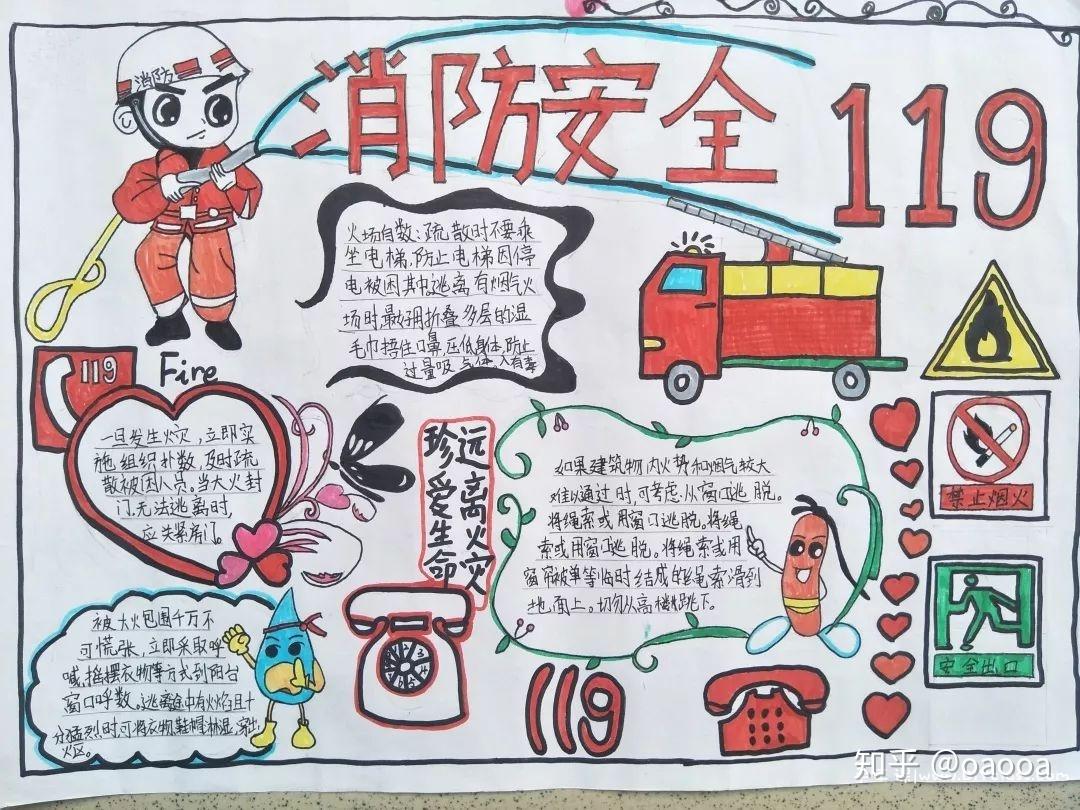 消防
消防安全
119
火场自数：疏散时不要乘
坐电梯，防止电梯因停
电被困其中，逃离有烟气火
场时，最好用折叠多层的湿
毛巾捂住口鼻，压低身体，防止
过量吸气体，入有毒
119
Fire
一旦发生火灾，立即实
施组织扑数，及时疏
散被困人员。当大火封
门，无法逃离时，
应关紧房门。
珍爱生命
远离火灾
如果建筑物内火势和烟气较大
难以通过时，可考虑从窗口逃脱。
将绳索或用窗口逃脱。将绳
索或用窗口逃脱。将绳索或用
窗帘被单等临时结成的绳索滑到
地面上。切勿从高楼跳下。
禁止烟火
安全出口
被大火包围千万不
可慌张，立即采取呼
喊，摇摆衣物等方式到阳台
窗口呼数。逃离途中有火焰且十
分猛烈时，可将衣物鞋帽淋湿，
火区。
119
知乎 @oaooa